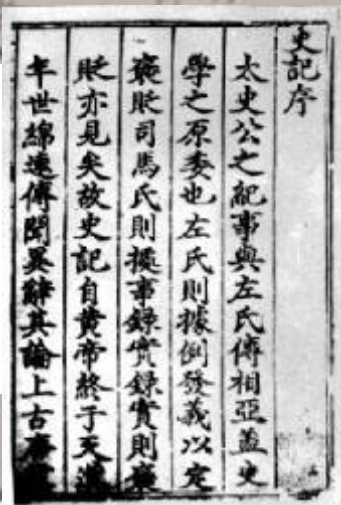 史記序
太史公之紀事與左氏傳相亞蓋史
學之原委也左氏則據例發義以定
褒貶司馬氏則據事錄實錄實則褒
貶亦見矣故史記自黃帝終于天漢
年世綿遠傳聞異辭其論上古事